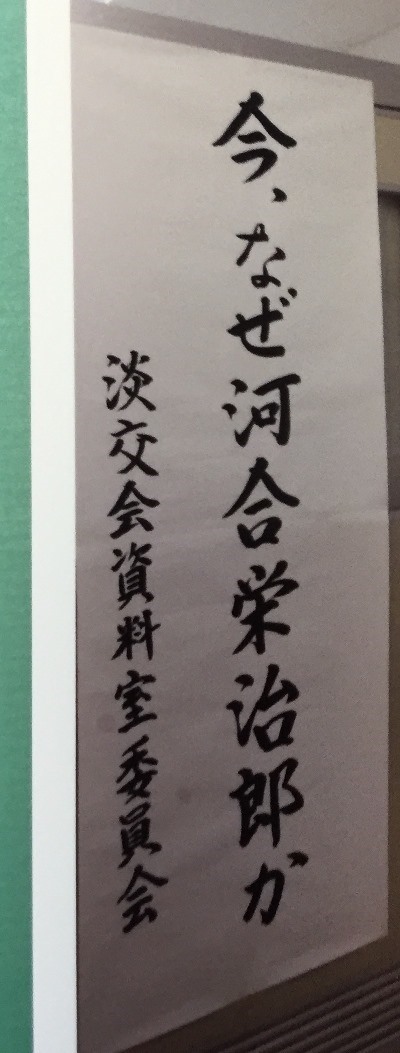 今、なぜ河合栄治郎か
淡交会資料室委員会